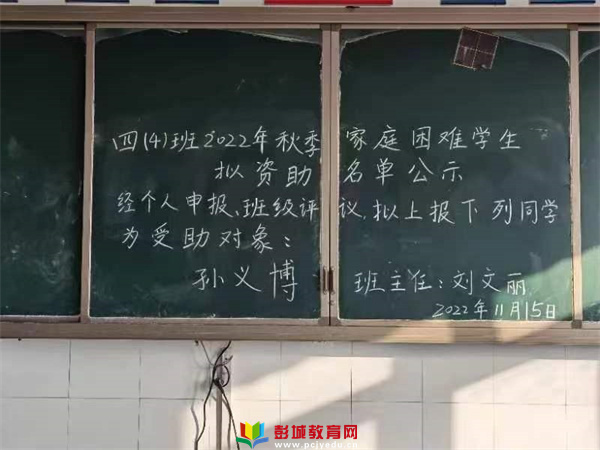 四(4)班2022年秋季家庭困难学生
拟资助名单公示
经个人申报、班级评议,拟上报下列同学
为受助对象:
孙义博 班主任:刘文丽
2022年11月15日
彭城教育网
www.pcjyedu.cn